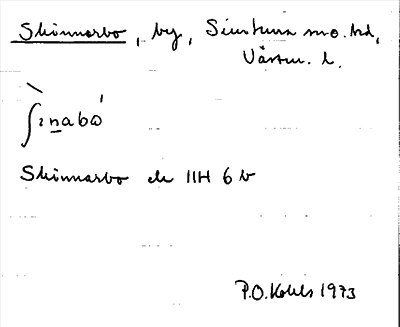 Skinnarbo, by, Simtuna sn o. hd,
Västm. l.
ʃìnabó
Skinnarbo ek 11H 6 b
P.O. Kohls 1973